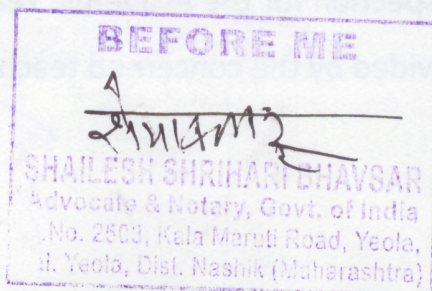 BEFORE ME
SHAILESH SHRIHARI BHAVSAR
Advocate & Notary, Govt. of India
.No. 2503, Kala Maruti Road, Yeola,
Yeola, Dist. Nashik (Maharashtra)